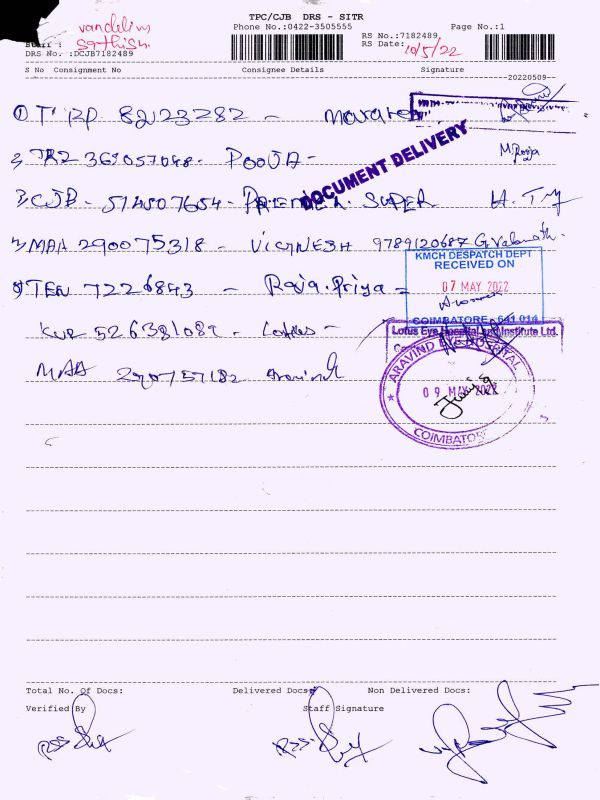 TPC/CJB DRS - SITR
vandelim
sathish.
Phone No.:0422-3505555
Page No.:1
RS No.:7182489
Staff :
RS Date: 10/5/22
DRS No. :DCJB7182489
S No Consignment No Consignee Details Signature
--20220509--
① TIRP 82123282 -
2, 369057048. POOJA - M. Pooja
DOCUMENT DELIVERY
3, CJB - 514507654 - PREMIER. SUPER
4, MAA 290075318 - VIGNESH 9789120687
KMCH DESPATCH DEPT
RECEIVED ON
5, TEN 7226843 - Raja.Priya -
07 MAY 2022
COIMBATORE - 641 014
KUR 526381089 - Lotus -
Lotus Eye Hospital and Institute Ltd.
MAA 290757182 Aravind
ARAVIND EYE HOSPITAL
09 MAY 2022
COIMBATORE
Total No. Of Docs: Delivered Docs: Non Delivered Docs:
Verified By Staff Signature